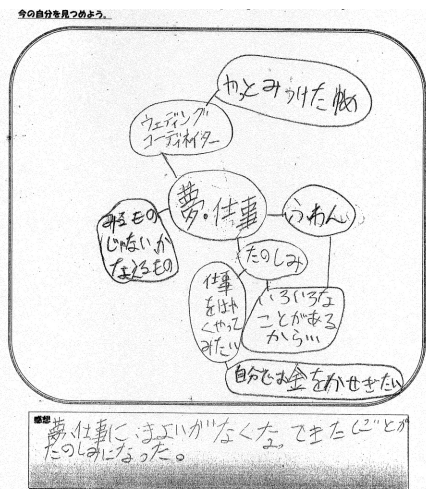 今の自分を見つめよう。
やっとみつけた ゆめ
ウェディング
コーディネイター
夢・仕事
みるもの
じゃない、か
なえるもの
ふあん
たのしみ
仕事
をはや
くやって
みたい
いろいろな
ことがある
から…
自分でお金をかせぎたい
感想
夢、仕事に、まよいがなくな
できた
たのしみになった。